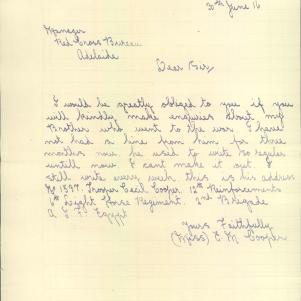 30th June 16
Manager
Red Cross Bureau
Adelaide
Dear Sir,
I would be greatly obliged to you if you
will kindly make enquires about my
Brother who went to the war I have
not had a line from him for three
months now. he used to write so regular
untill now I cant make it out I
still write every week this is his address
No 1597. Trooper Cecil Cooper. 12th Reinforcements
Light Horse Regiment. 2nd Brigade
A. I. F. Egypt
Yours Faithfully
(Miss) C. M Cooper